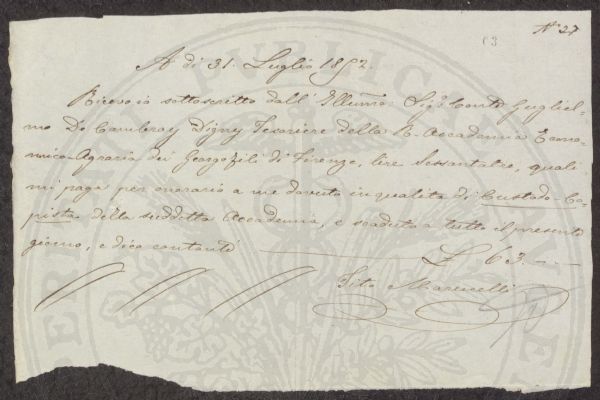 63
N° 27
A dì 31. Luglio 1852
Ricevo io sottoscritto dall' Illumo: Sigr Conte Gugliel=
mo De Cambray Digny Tesoriere della R. Accademia Econo=
mico-Agraria dei Georgofili di Firenze, lire Sessantatre, quali
mi paga per onorario a me dovuto in qualità di Custode-Co=
pista della suddetta Accademia, e scaduto a tutto il presente
giorno, e dico contanti
L 63.--
Tito Marucelli